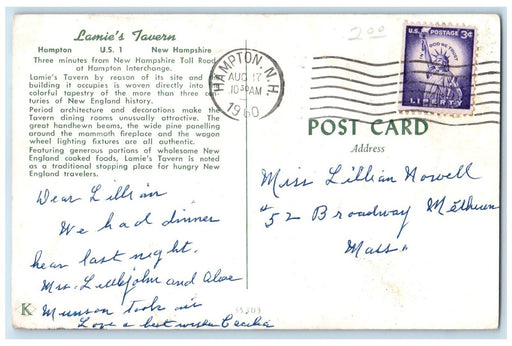 Lamie's Tavern
Hampton U.S. 1 New Hampshire
Three minutes from New Hampshire Toll Road
at Hampton Interchange.
Lamie's Tavern by reason of its site and
building it occupies is woven directly into the
colorful tapestry of the more than three cen-
turies of New England history.
Period architecture and decorations make the
Tavern dining rooms unusually attractive. The
great handhewn beams, the wide pine panelling
around the mammoth fireplace and the wagon
wheel lighting fixtures are all authentic.
Featuring generous portions of wholesome New
England cooked foods, Lamie's Tavern is noted
as a traditional stopping place for hungry New
England travelers.
2.00
HAMPTON, N.H.
AUG 17
10 30 AM
1960
U.S. POSTAGE 3¢
IN GOD WE TRUST
LIBERTY
POST CARD
Address
Miss Lillian Nowell
#52 Broadway Methuen
Mass.
Dear Lillian
We had dinner
hear last night.
Mrs. Littlejohn and
Munson took
Love & best wishes Cecilia
K